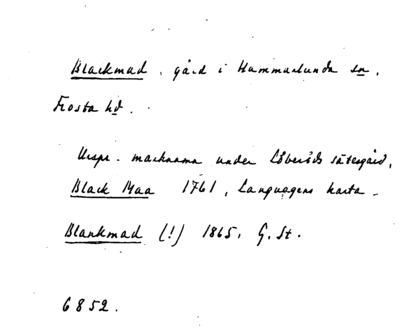 Blackmad, gård i Hammarlunda sn,
Frosta hd.
Urspr. marknamn under Löberöds sätesgård,
Black Maa 1761, Languagens karta.
Blankmad (!) 1865, G. St.
6852.